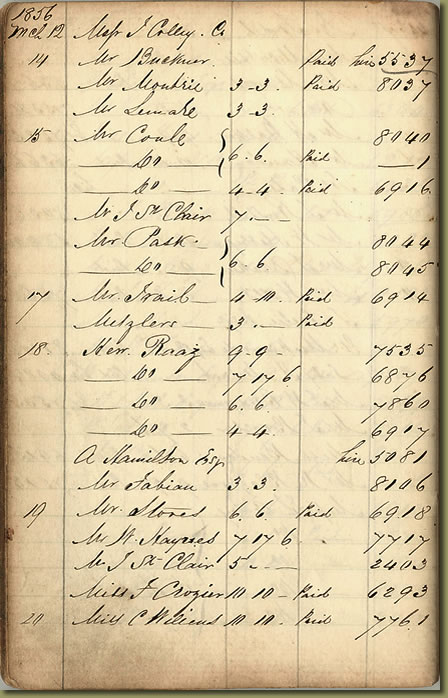 1856
Mch 12 Messrs J Colley. Co
14 Mr Buckner. Paid hire 5537
Mr Moutrie 3-3. Paid 8037
Mr Lemare 3 3.
15 Mr Coule 8040
Do 6.6. Paid — 1
Do 4-4. Paid 6916
Mr J St Clair 7.—
Mr Pask. 8044
Do 6 6. 8045
17 Mr. Trail 4-10. Paid 6914
Metzlers 3.— Paid
18 Herr. Raaz 9-9- 7535
Do 7 17 6 6876
Do 6.6. 7860
Do 4-4. 6917
A Hamilton Esq hire 5081
Mr Fabian 3.3. 8106
19 Mr. Stores 6.6. Paid 6918
Mr W. Haynes 7 17 6 7717
Mr J St Clair 5.— 2403
Miss F Crozier 10 10 - Paid 6293
20 Miss C 10 10. Paid 7761